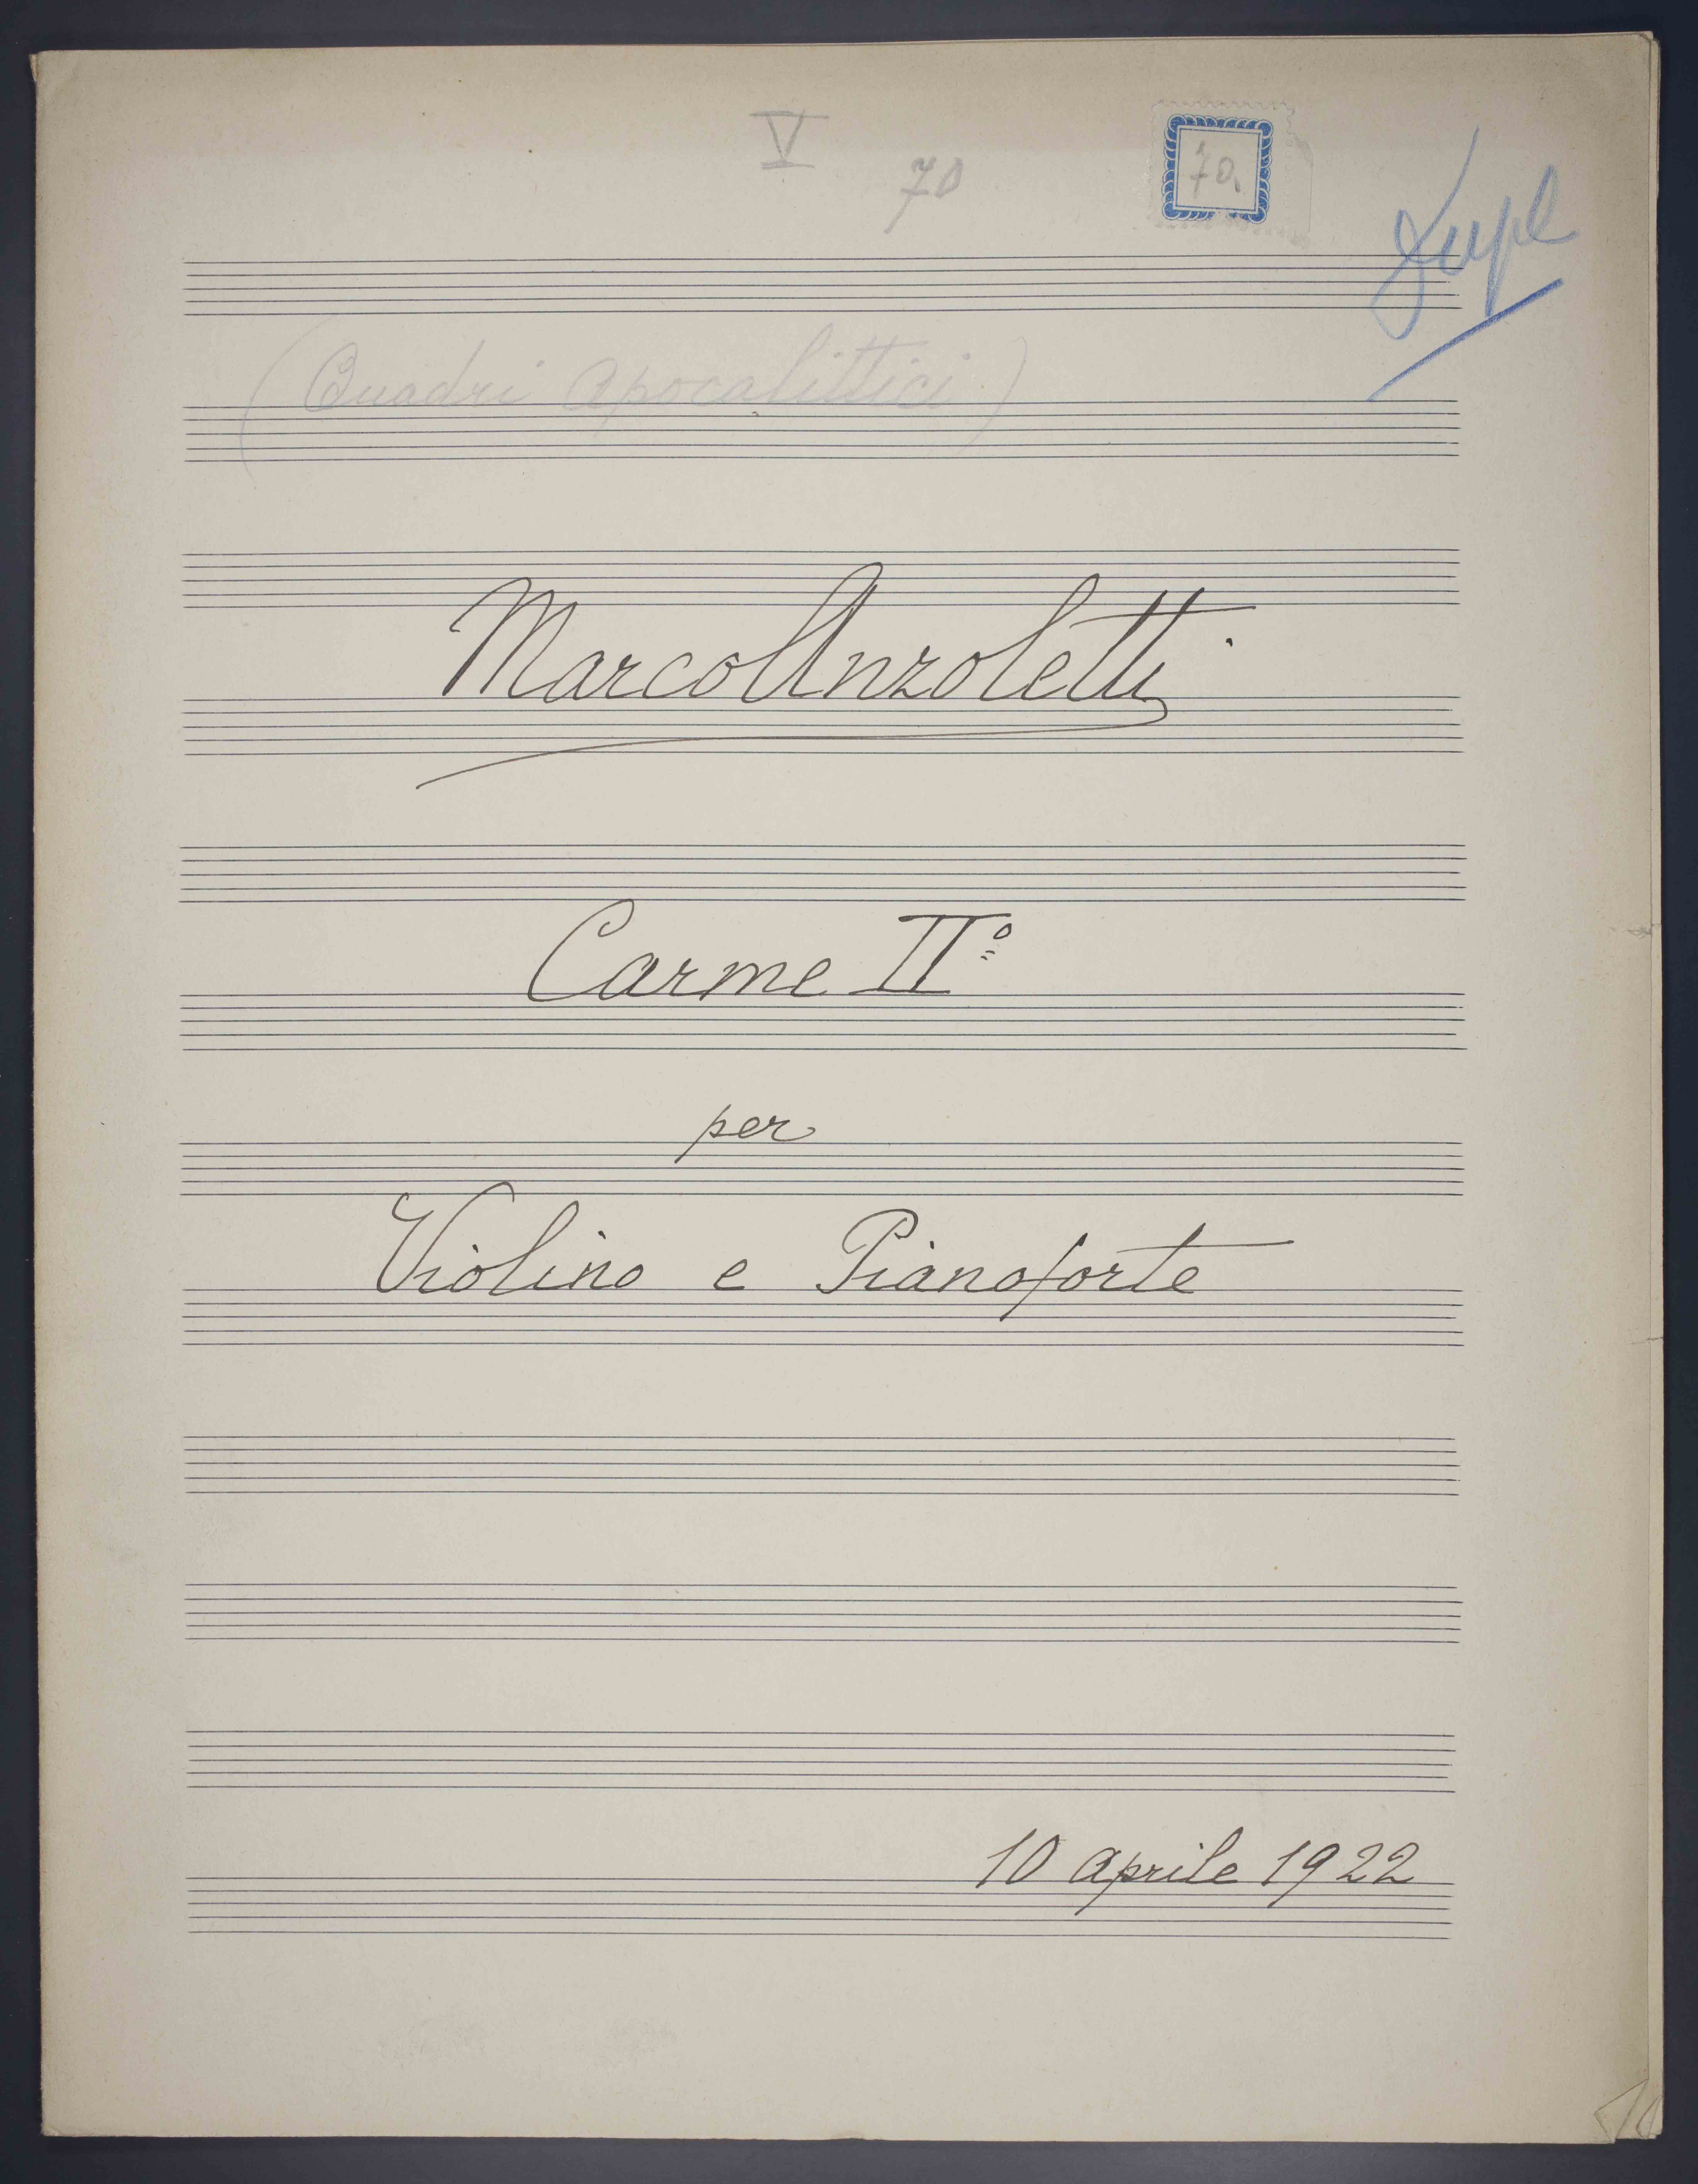 V
70
70.
Dupl
(Quadri Apocalittici)
Marco Anzoletti
Carme IIº
per
Violino e Pianoforte
10 Aprile 1922